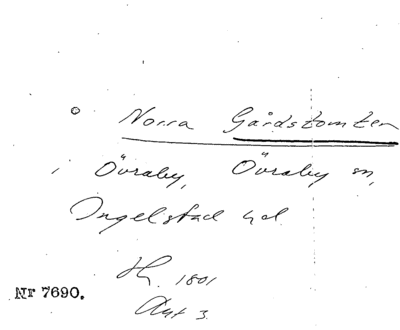 ° Norra Gårdstomten
i Övraby, Övraby sn,
Ingelstad hd.
1801
Akt 3.
Nr 7690.